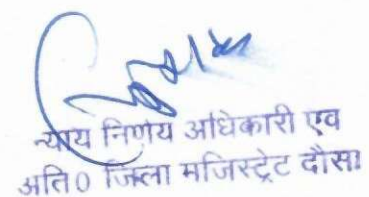 न्याय निर्णय अधिकारी एव
अति० जिला मजिस्ट्रेट दौसा